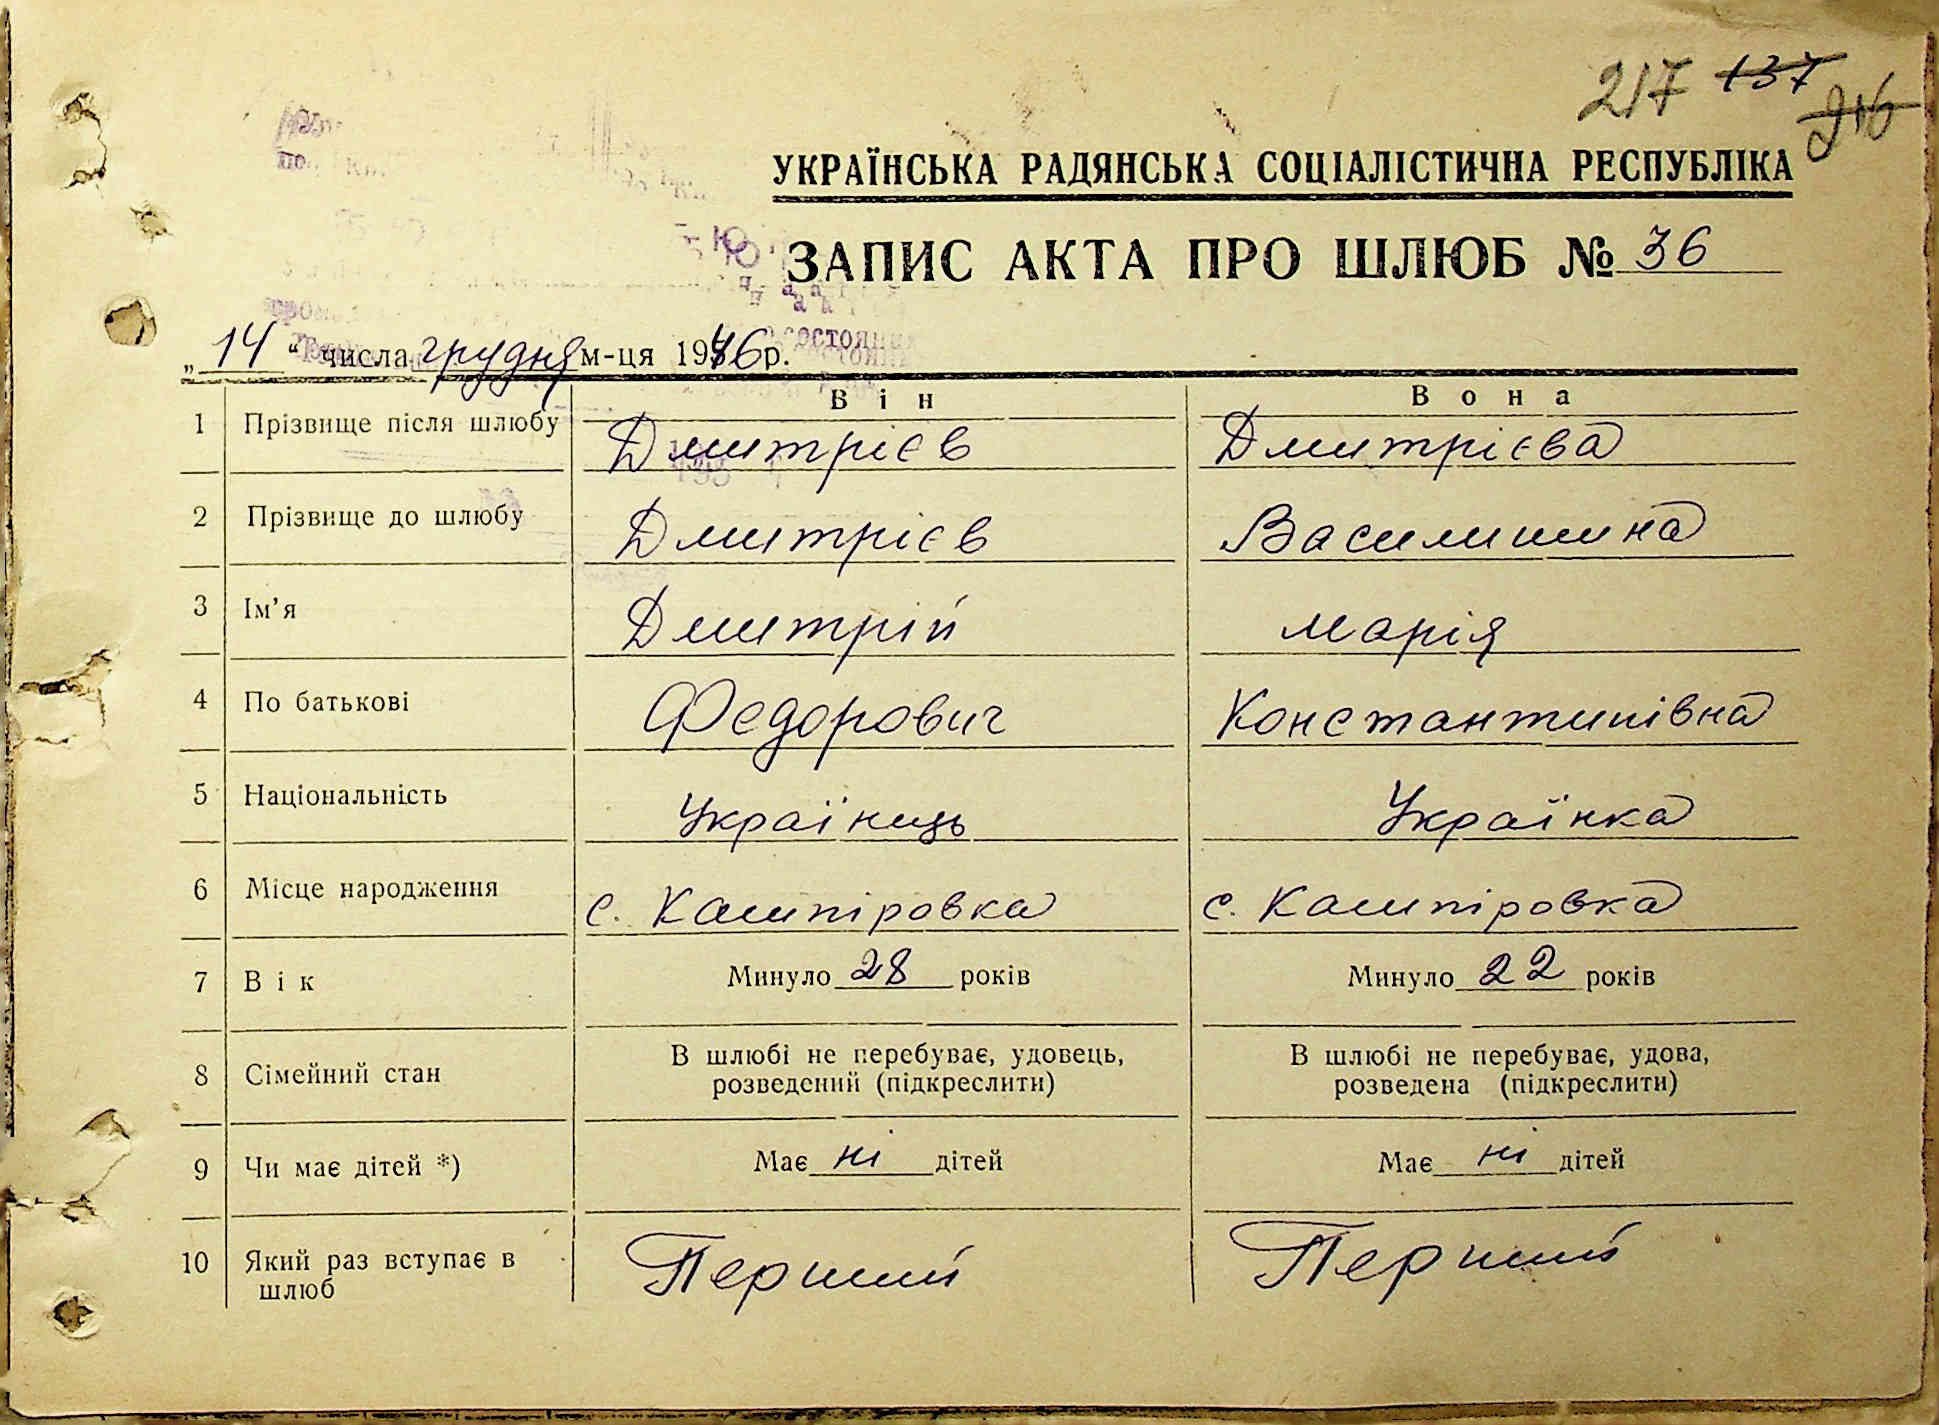 217 137 216
УКРАЇНСЬКА РАДЯНСЬКА СОЦІАЛІСТИЧНА РЕСПУБЛІКА
ЗАПИС АКТА ПРО ШЛЮБ № 36
„14“ числа грудня м-ця 1946 р.
Він Вона
1 Прізвище після шлюбу Дмитрієв Дмитрієва
2 Прізвище до шлюбу Дмитрієв Василишина
3 Ім’я Дмитрій Марія
4 По батькові Федорович Константинівна
5 Національність Українець Українка
6 Місце народження с. Кашпіровка с. Кашпіровка
7 Вік Минуло 28 років Минуло 22 років
8 Сімейний стан В шлюбі не перебуває, удовець, В шлюбі не перебуває, удова,
розведений (підкреслити) розведена (підкреслити)
9 Чи має дітей *) Має ні дітей Має ні дітей
10 Який раз вступає в Перший Перший
шлюб